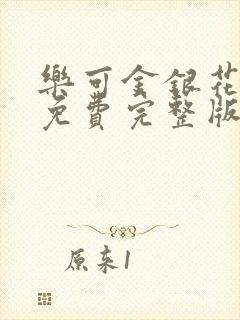 樂可金銀花
免費完整版
原来1